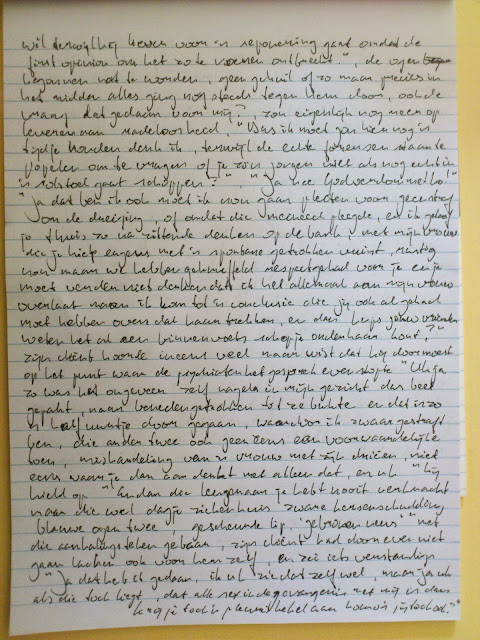 wil terwijl hij liever voor 'n reponering gaat omdat de
first opinion om het zo te noemen ontbreekt?", de ogen
begonnen nat te worden, geen gehuil of zo maar precies in
het midden alles ging nog steeds tegen hem door, ook de
vraag dat gedaan voor mij?, zou eigenlijk nog meer op
leveren aan radeloosheid, "Was ik moet jou hier nog 'n
tijdje houden denk ik, terwijl de echte forensen staan te
popelen om te vragen of je zo'n jongen wilt als nog echt in
'n rolstoel gaat schoppen?" "Ja nee Godverdomme ho!"
"Ja dat ben ik ook moet ik nou gaan pleiten voor gecenstraf
om de dreiging, of omdat die meineed pleegde, en ik geloof
je thuis zo na zittende denken op de bank, met mijn vrouw
die je hielp ergens met 'n spontane getrokken vuist, rustig
nou maar we hebben gehandeld respect gehad voor je en je
moet verder niet denken dat ik het allemaal aan mijn vrouw
overlaat maar ik kom tot 'n conclusie die jij ook al gehad
moet hebben over dat haar trekken, en dan leips jouw vrienden
weten het al een binnenvoets schopje onderhaar kont?"
zijn cliënt hoorde ineens veel maar wist dat hij door moest
op het punt waar de psychiater het gesprek even stopte "Uh ja
zo was het ongeveer zelf nagels in mijn gezicht das beet
gepakt, naar beneden getrokken tot ze bukte en det is zo
'n half uurtje door gegaan, waardoor ik zwaar gestraft
ben, die ander twee ook geen eens een voorwaardelijke
toen, mishandeling van 'n vrouw met zijn drieën, niet
eens waar je dan aan denkt met alleen dat, en uh" "hij
hield op" "En dan die leugenaam je hebt nooit verkracht
maar die wel dagje ziekenhuis zware hersenschudding
blauwe ogen twee, gescheurde lip, 'gebroken neus'" met
die aanhalingsteken gebaar, zijn cliënt had door even niet
gaan lachen ook voor hem zelf, en zei iets verstandigs
"Ja dat heb ik gedaan, ik uh zie dat zelf wel, maar ja uh
als die toch liegt, dat alle sex in de gevangenis met mij is dan
krijg je toch 'n pleuris hekel aan